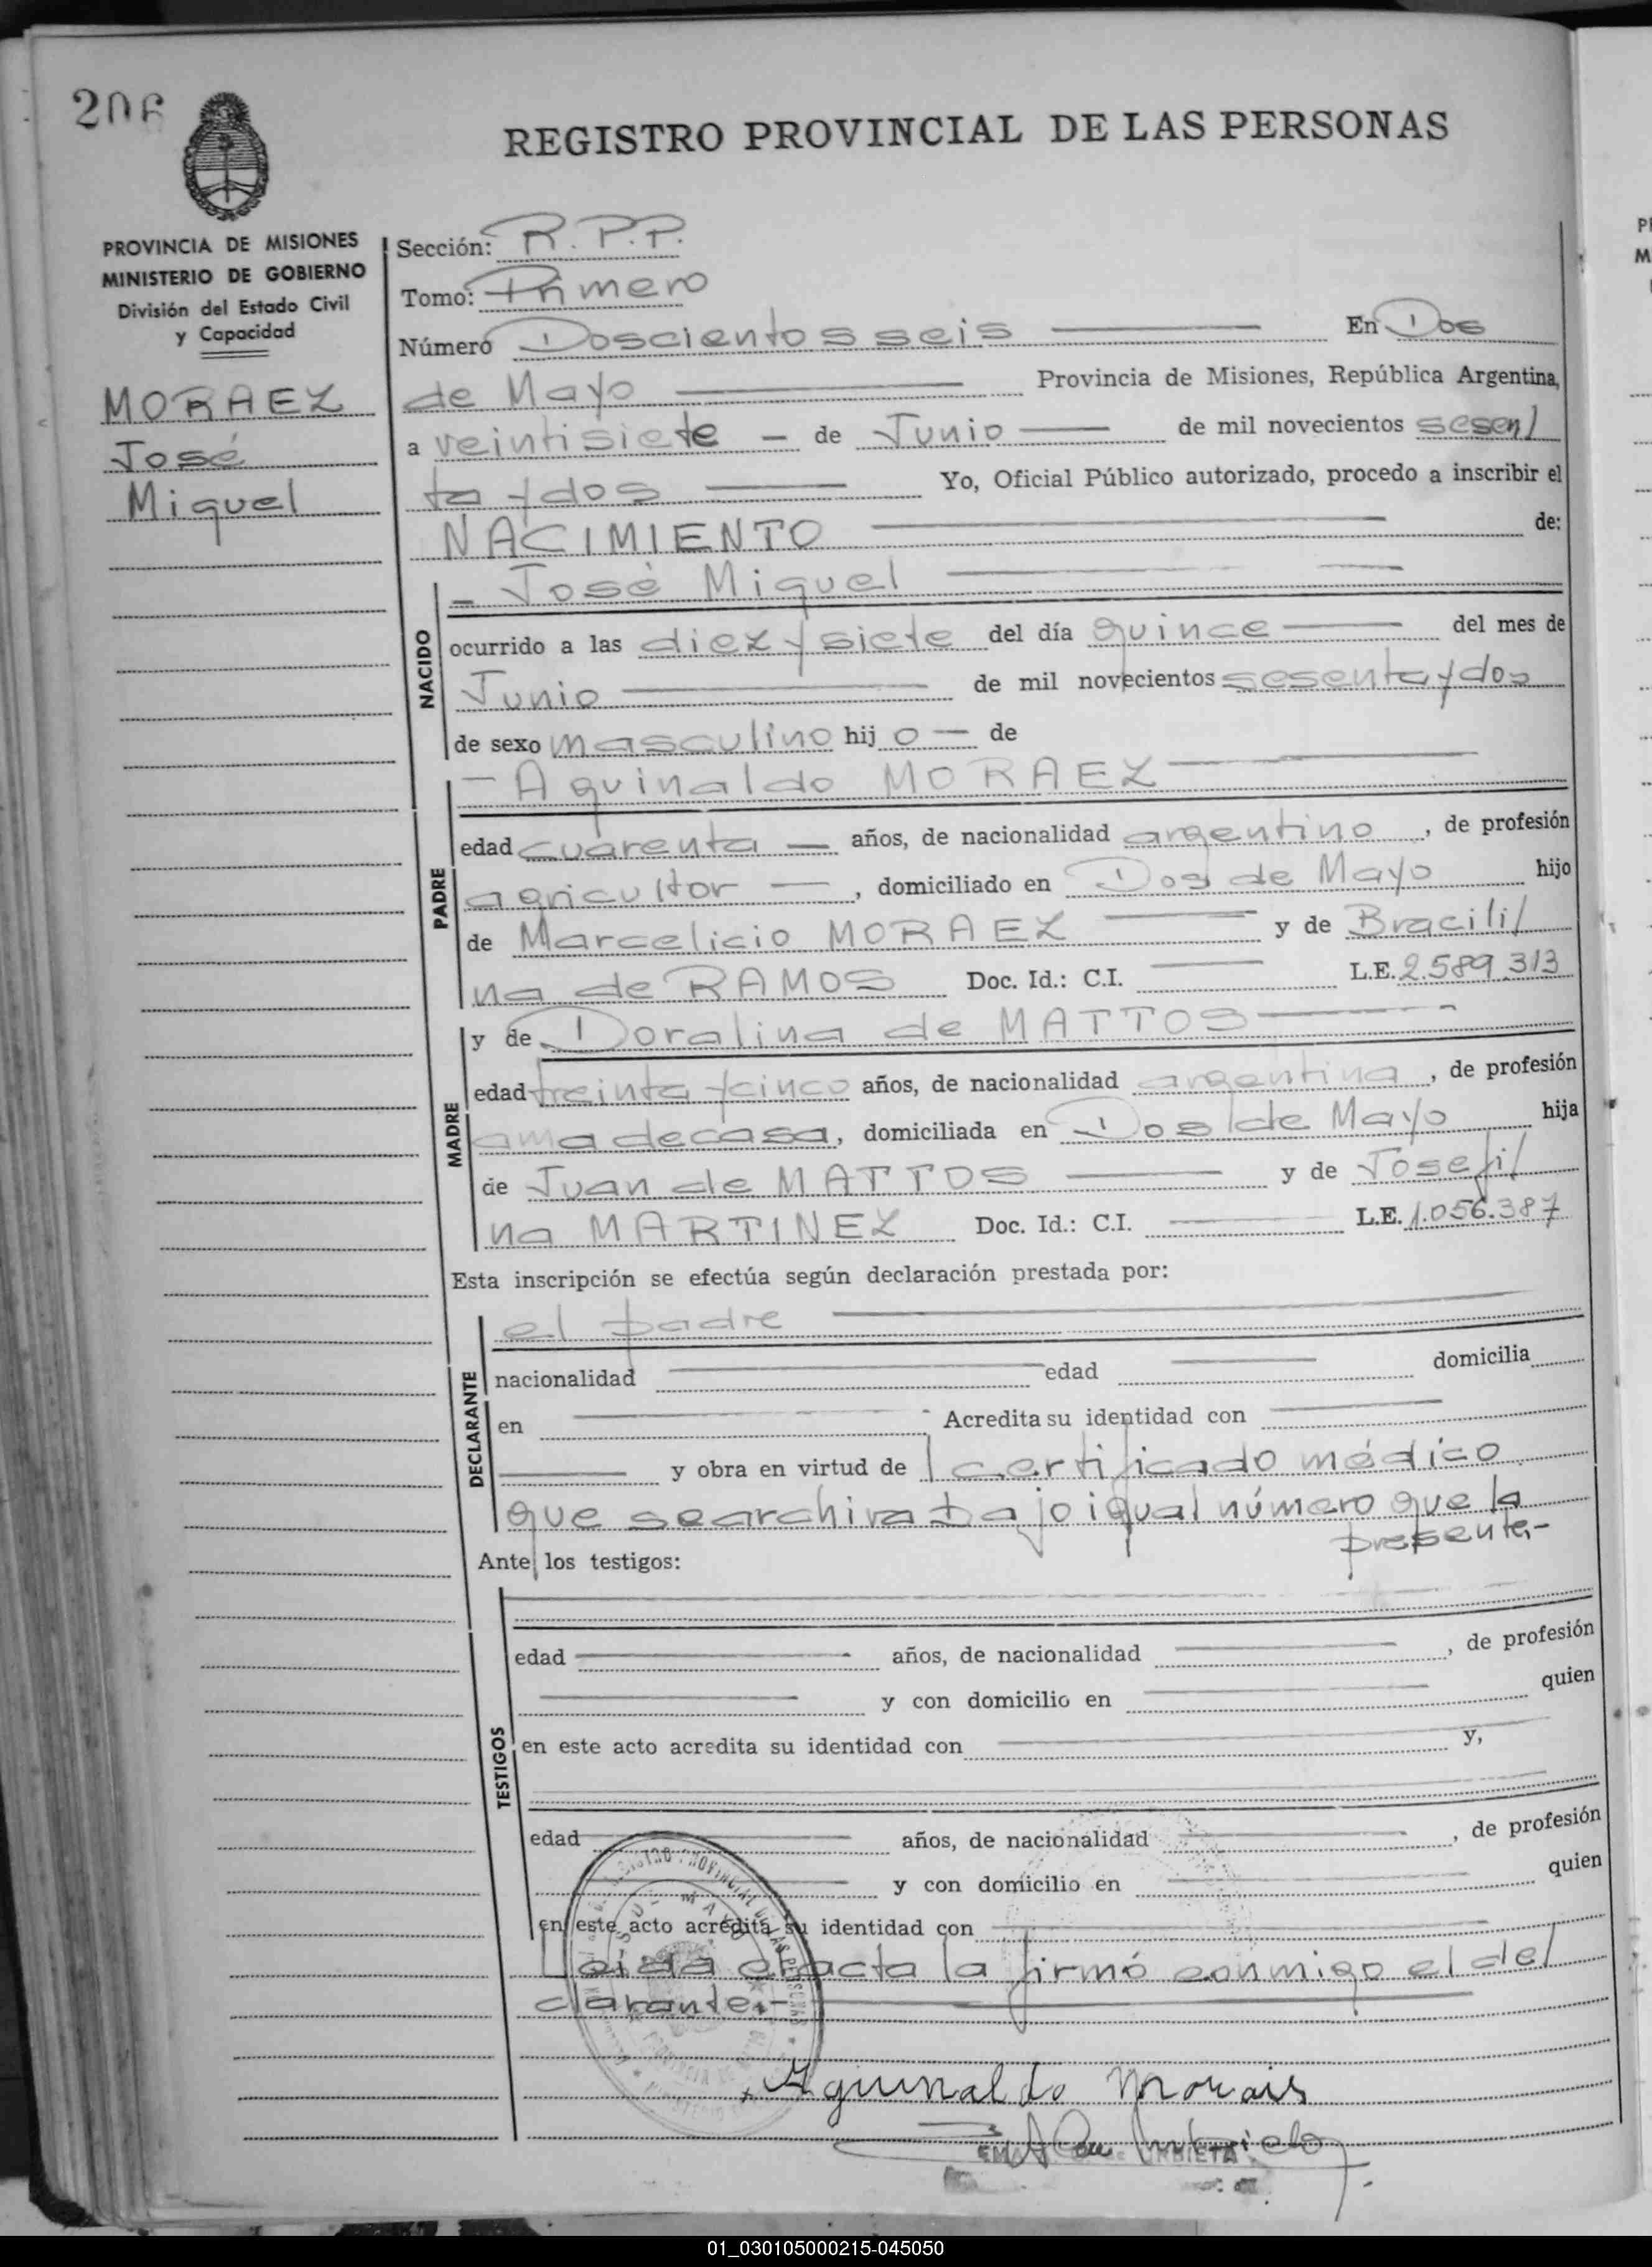 206
REGISTRO PROVINCIAL DE LAS PERSONAS
PROVINCIA DE MISIONES
MINISTERIO DE GOBIERNO
División del Estado Civil
y Capacidad
MORAEZ
José
Miguel
Sección: R. P. P.
Tomo: Primero
Número Doscientos seis En Dos
de Mayo Provincia de Misiones, República Argentina,
a veintisiete — de Junio de mil novecientos sesen/
ta y dos Yo, Oficial Público autorizado, procedo a inscribir el
NACIMIENTO de:
NACIDO
- José Miguel
ocurrido a las diez y siete del día quince del mes de
Junio de mil novecientos sesenta y dos
de sexo masculino hij o — de
PADRE
- Aguinaldo MORAEZ
edad cuarenta — años, de nacionalidad argentino, de profesión
agricultor —, domiciliado en Dos de Mayo hijo
de Marcelicio MORAEZ y de Bracili/
na de RAMOS Doc. Id.: C.I. L.E. 2.589.313
MADRE
y de Doralina de MATTOS
edad treinta y cinco años, de nacionalidad argentina, de profesión
ama de casa, domiciliada en Dos de Mayo hija
de Juan de MATTOS y de Josefi/
na MARTINEZ Doc. Id.: C.I. L.E. 1.056.387
Esta inscripción se efectúa según declaración prestada por:
DECLARANTE
el padre
nacionalidad edad domicilia
en Acredita su identidad con
y obra en virtud de certificado médico
que se archiva bajo igual número que la
presente.-
Ante los testigos:
TESTIGOS
edad años, de nacionalidad , de profesión
y con domicilio en quien
en este acto acredita su identidad con y,
edad años, de nacionalidad , de profesión
y con domicilio en quien
en este acto acredita su identidad con
Leída el acta la firmó conmigo el de/
clarante.-
Aguinaldo Morais
01_030105000215-045050